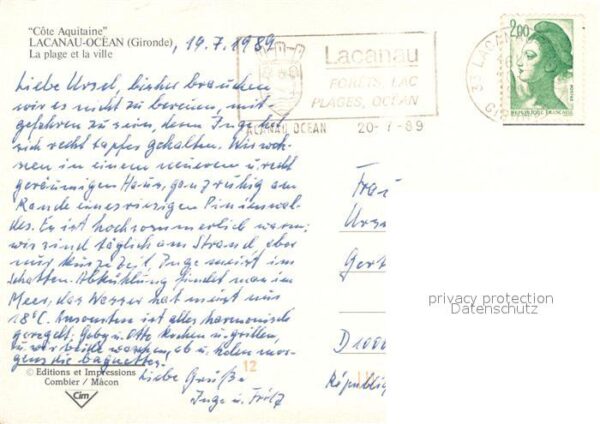 "Côte Aquitaine"
LACANAU-OCÉAN (Gironde), 19.7.1989
La plage et la ville
Liebe Ursel, bisher brauchen
wir es nicht zu bereuen, mit-
gefahren zu sein, denn Inge hat
sich recht tapfer gehalten. Wir woh-
nen in einem neueren u. recht
geräumigen Haus, ganz ruhig am
Rande eines riesigen Pinienwal-
des. Es ist hochsommerlich warm;
wir sind täglich am Strand, aber
nur kurze Zeit, Inge meist im
Schatten. Abkühlung findet man im
Meer, das Wasser hat meist nur
18°C. Ansonsten ist alles harmonisch
geregelt: Gaby u. Otto kochen u. grillen,
u. wir beide waschen, ab u. holen mor-
gens die baguettes.
Liebe Grüße
Inge u. Fritz
© Editions et Impressions
Combier / Mâcon
Cim
12
Lacanau
FORÊTS, LAC
PLAGES, OCÉAN
LACANAU OCEAN 20-7-89
33 LACA
2,00
REPUBLIQUE FRANÇAISE
Frau
Urs
Gert
D 1000
Républiq
privacy protection
Datenschutz